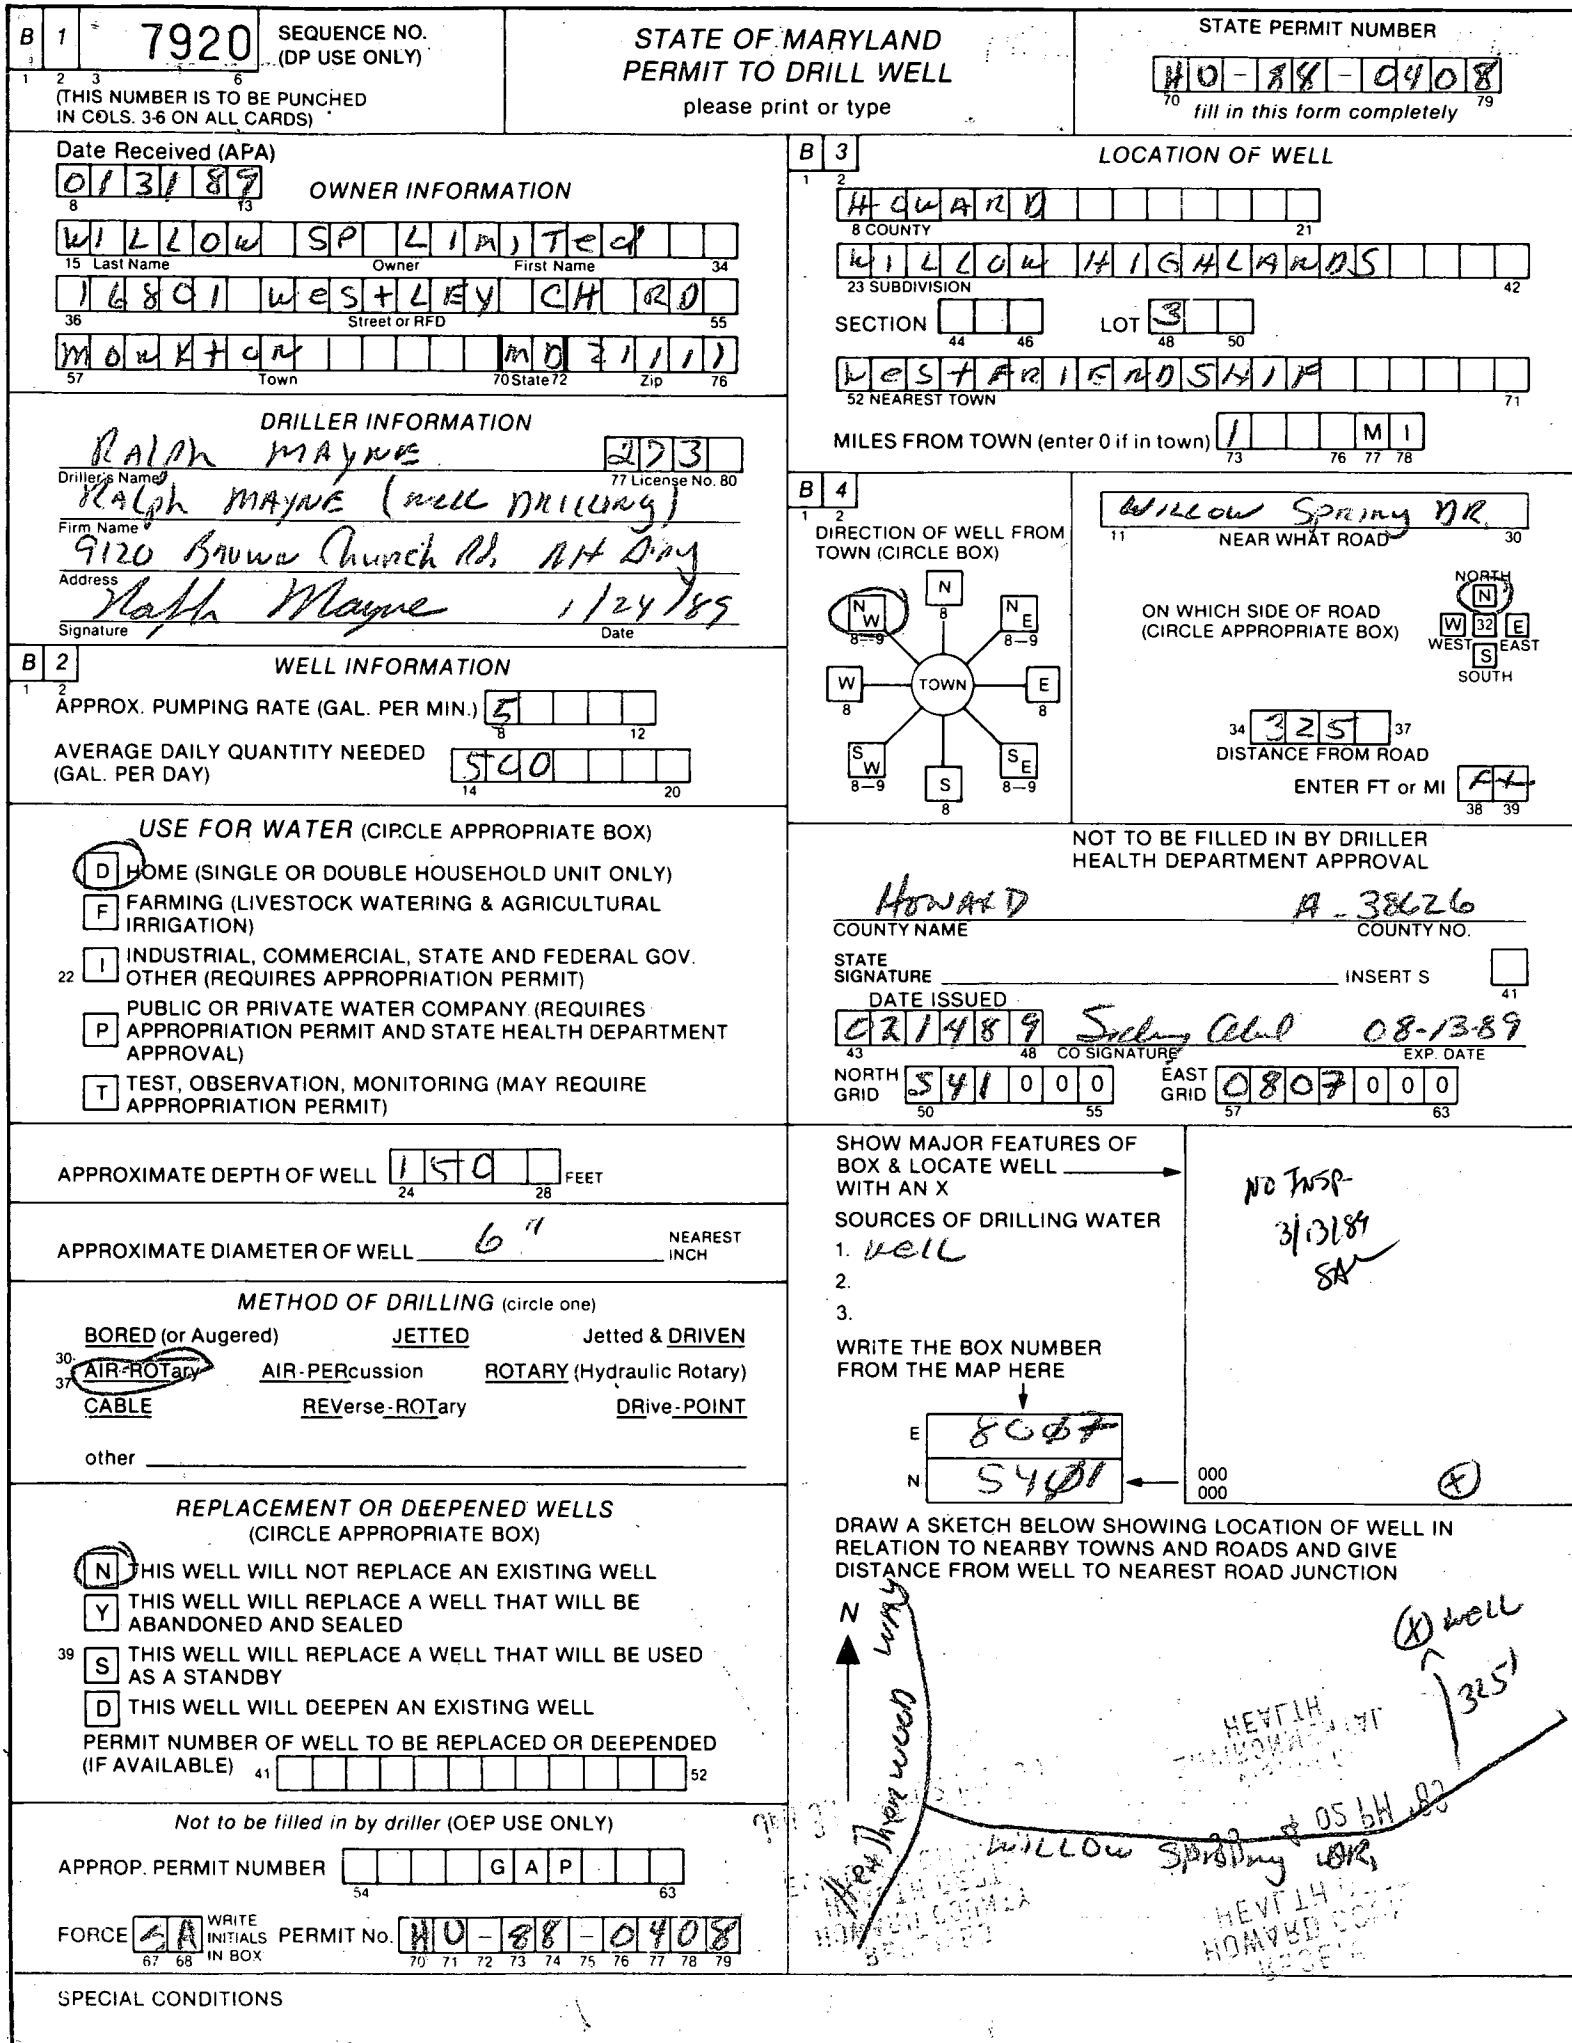 B 1 7920 SEQUENCE NO.
(DP USE ONLY)
1 2 3 6
(THIS NUMBER IS TO BE PUNCHED
IN COLS. 3-6 ON ALL CARDS)
STATE OF MARYLAND
PERMIT TO DRILL WELL
please print or type
STATE PERMIT NUMBER
HO-88-0408
70 79
fill in this form completely
Date Received (APA)
013189
8 13
OWNER INFORMATION
WILLOW SP LIMITed
15 Last Name Owner First Name 34
16801 WesTLEY CH RD
36 Street or RFD 55
MonkTon MD 21111
57 Town 70 State 72 Zip 76
DRILLER INFORMATION
RALPh MAYNE 273
Driller's Name 77 License No. 80
RALph MAYNE (Well DRILLING)
Firm Name
9120 Brown Church Rd. Mt Airy
Address
Ralph Mayne 1/24/89
Signature Date
B 2 WELL INFORMATION
1 2
APPROX. PUMPING RATE (GAL. PER MIN.) 5
8 12
AVERAGE DAILY QUANTITY NEEDED
(GAL. PER DAY) 500
14 20
USE FOR WATER (CIRCLE APPROPRIATE BOX)
D HOME (SINGLE OR DOUBLE HOUSEHOLD UNIT ONLY)
F FARMING (LIVESTOCK WATERING & AGRICULTURAL
IRRIGATION)
22 I INDUSTRIAL, COMMERCIAL, STATE AND FEDERAL GOV.
OTHER (REQUIRES APPROPRIATION PERMIT)
P PUBLIC OR PRIVATE WATER COMPANY (REQUIRES
APPROPRIATION PERMIT AND STATE HEALTH DEPARTMENT
APPROVAL)
T TEST, OBSERVATION, MONITORING (MAY REQUIRE
APPROPRIATION PERMIT)
APPROXIMATE DEPTH OF WELL 150 FEET
24 28
APPROXIMATE DIAMETER OF WELL 6" NEAREST
INCH
METHOD OF DRILLING (circle one)
BORED (or Augered) JETTED Jetted & DRIVEN
30-37 AIR-ROTary AIR-PERcussion ROTARY (Hydraulic Rotary)
CABLE REVerse-ROTary DRive-POINT
other
REPLACEMENT OR DEEPENED WELLS
(CIRCLE APPROPRIATE BOX)
N THIS WELL WILL NOT REPLACE AN EXISTING WELL
Y THIS WELL WILL REPLACE A WELL THAT WILL BE
ABANDONED AND SEALED
39 S THIS WELL WILL REPLACE A WELL THAT WILL BE USED
AS A STANDBY
D THIS WELL WILL DEEPEN AN EXISTING WELL
PERMIT NUMBER OF WELL TO BE REPLACED OR DEEPENDED
(IF AVAILABLE) 41 52
Not to be filled in by driller (OEP USE ONLY)
APPROP. PERMIT NUMBER G A P
54 63
FORCE SA WRITE
INITIALS
IN BOX
67 68
PERMIT No. HO-88-0408
70 71 72 73 74 75 76 77 78 79
SPECIAL CONDITIONS
B 3 LOCATION OF WELL
1 2
HOWARD
8 COUNTY 21
WILLOW HIGHLANDS
23 SUBDIVISION 42
SECTION LOT 3
44 46 48 50
WesT FRIENDSHIP
52 NEAREST TOWN 71
MILES FROM TOWN (enter 0 if in town) 1 M I
73 76 77 78
B 4
1 2
DIRECTION OF WELL FROM
TOWN (CIRCLE BOX)
N 8
N W 8-9
N E 8-9
W 8
TOWN
E 8
S W 8-9
S 8
S E 8-9
WILLOW Spring DR.
11 NEAR WHAT ROAD 30
ON WHICH SIDE OF ROAD
(CIRCLE APPROPRIATE BOX)
NORTH
N
W 32 E
WEST EAST
S
SOUTH
34 325 37
DISTANCE FROM ROAD
ENTER FT or MI Ft
38 39
NOT TO BE FILLED IN BY DRILLER
HEALTH DEPARTMENT APPROVAL
HOWARD A-38626
COUNTY NAME COUNTY NO.
STATE
SIGNATURE INSERT S
41
DATE ISSUED
021489 08-13-89
43 48 CO SIGNATURE EXP. DATE
NORTH
GRID 541 0 0 0
50 55
EAST
GRID 0807 0 0 0
57 63
SHOW MAJOR FEATURES OF
BOX & LOCATE WELL
WITH AN X
SOURCES OF DRILLING WATER
1. Well
2.
3.
WRITE THE BOX NUMBER
FROM THE MAP HERE
E 8007
N 5401
000
000
X
NO INSP-
3/13/89
SA
DRAW A SKETCH BELOW SHOWING LOCATION OF WELL IN
RELATION TO NEARBY TOWNS AND ROADS AND GIVE
DISTANCE FROM WELL TO NEAREST ROAD JUNCTION
N
X Well
325'
WILLOW Spring DR.
HEALTH
HOWARD COUNTY